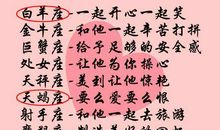 白羊座-一起开心一起笑
金牛座-和他一起辛苦打拼
巨蟹座-给予足够的安全感
处女座-让他为你操心
天秤座-美到让他惊艳
天蝎座-要么爱要么恨
射手座-和他一起去旅游